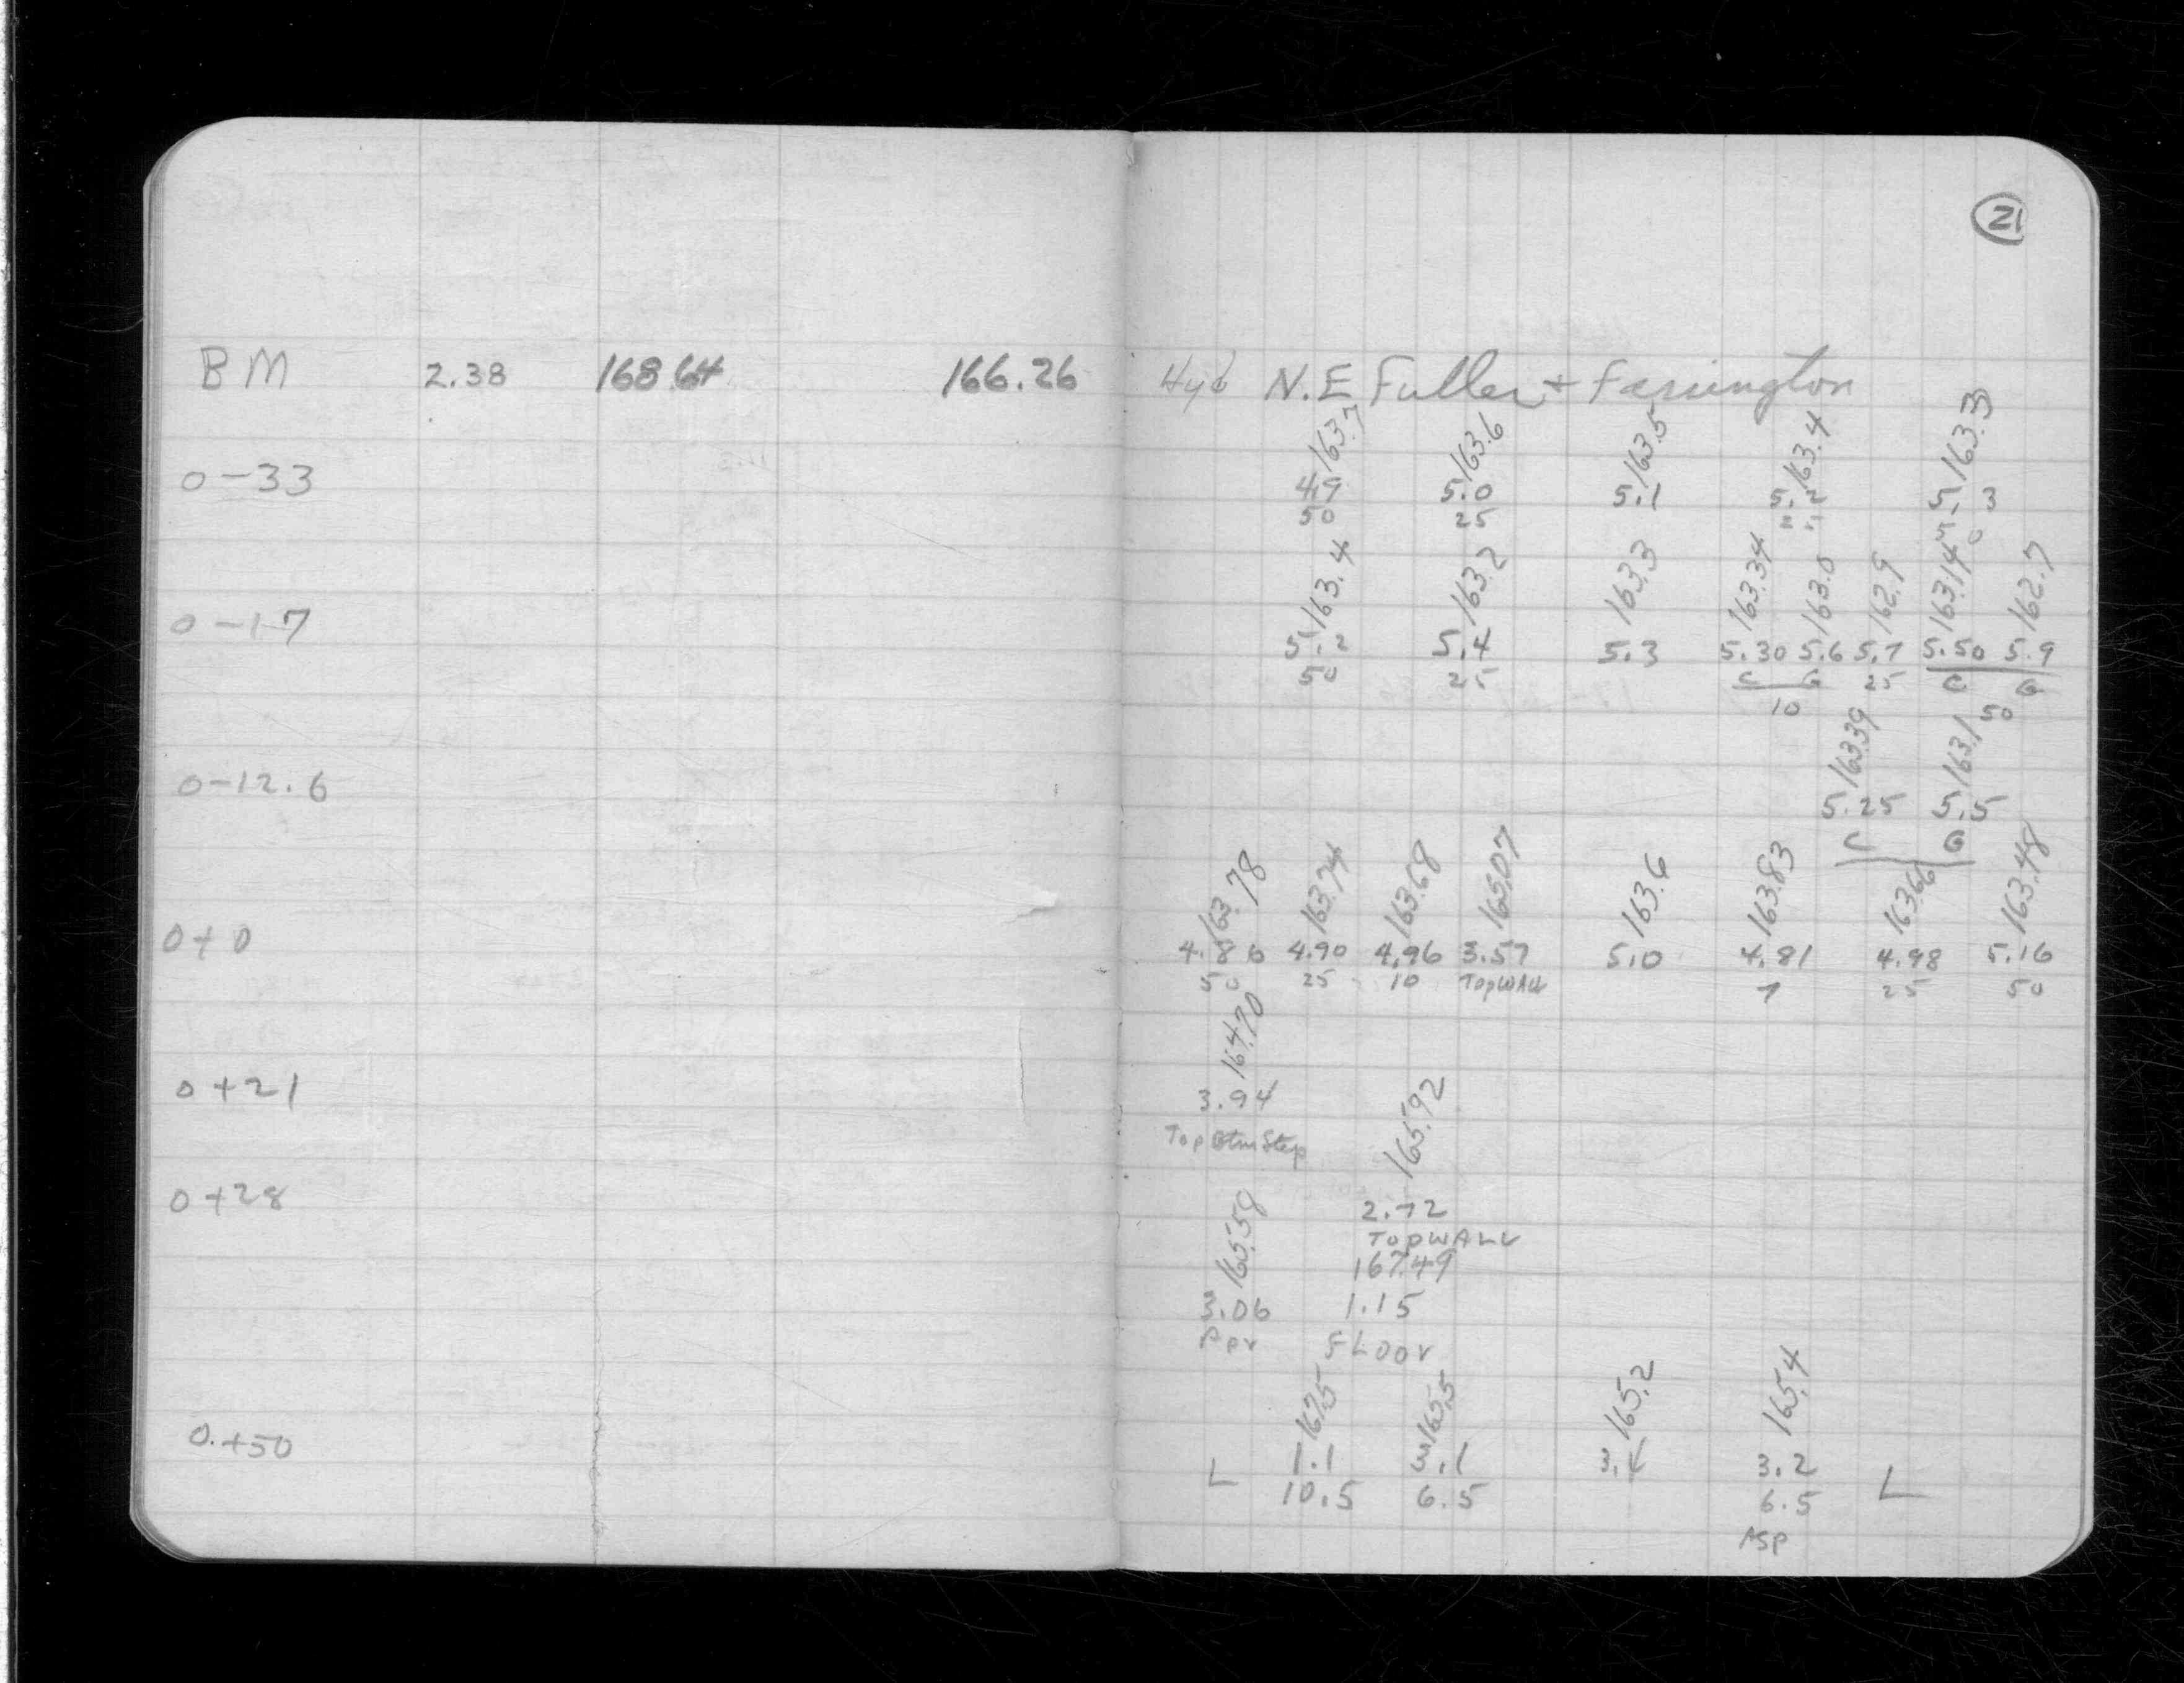 21
BM 2.38 168.64 166.26 Hyd N.E Fuller + Farrington
163.7 163.6 163.5 163.4 163.3
0-33 4.9 5.0 5.1 5.2 5.3
50 25 25 50
163.4 163.2 163.3 163.34 163.0 162.9 163.14 162.7
0-17 5.2 5.4 5.3 5.30 5.6 5.7 5.50 5.9
50 25 C G 25 C G
10 50
163.39 163.1
0-12.6 5.25 5.5
C G
163.78 163.74 163.68 165.07 163.6 163.83 163.66 163.48
0+0 4.86 4.90 4.96 3.57 5.0 4.81 4.98 5.16
50 25 10 TopWALL 7 25 50
164.70
0+21 3.94
Top Btm Step
165.92
0+28 2.72
TOPWALL
165.58 167.49
3.06 1.15
FLoor
167.5 165.5 165.2 165.4
0+50 L 1.1 3.1 3.4 3.2 L
10.5 6.5 6.5
ASP